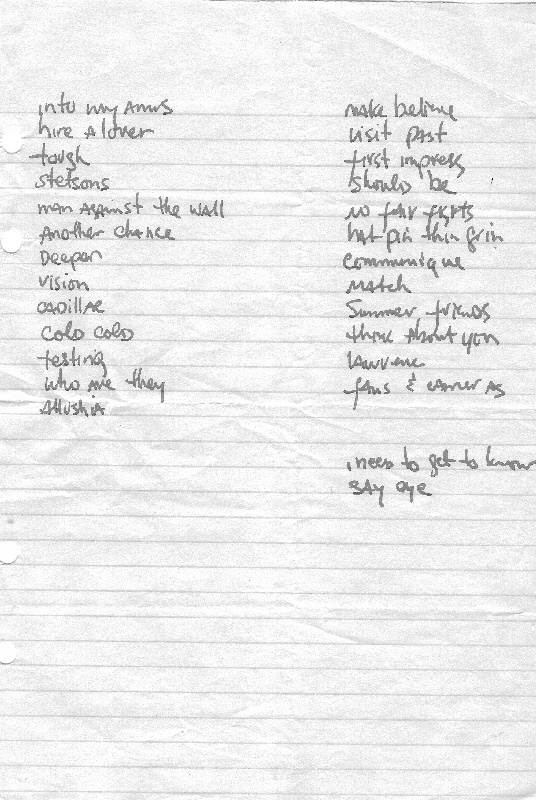 into my arms
hire a lover
tough
stetsons
man against the wall
Another chance
Deeper
vision
cadillac
cold cold
testing
who are they
make believe
visit past
first impress
should be
no fair fights
hat pin thin grin
communique
match
Summer friends
think about you
fans &
i need to get to know
say aye